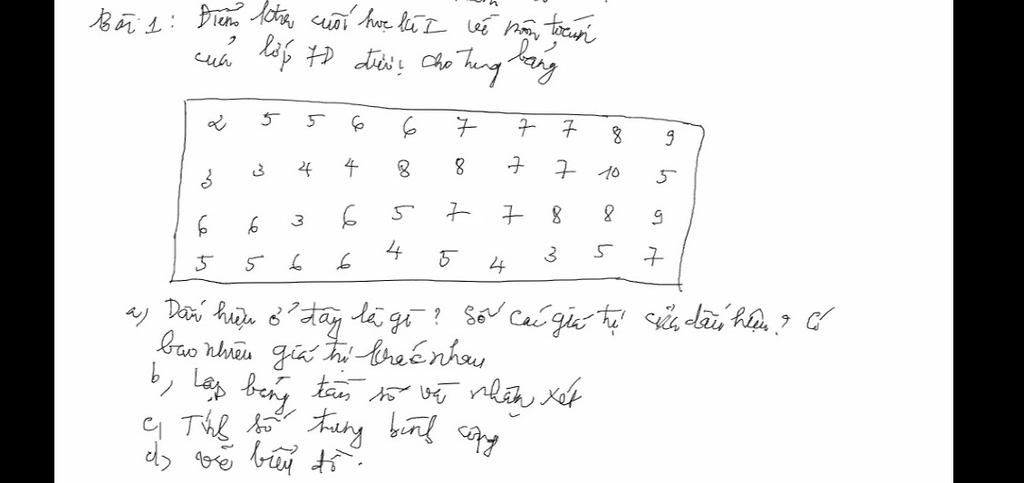 Bài 1: Điểm ktra cuối học kì I về môn toán
của lớp 7D được cho trong bảng
2 5 5 6 6 7 7 7 8 9
3 3 4 4 8 8 7 7 10 5
6 6 3 6 5 7 7 8 8 9
5 5 6 6 4 5 4 3 5 7
a) Dấu hiệu ở đây là gì? Số các giá trị của dấu hiệu? Có
bao nhiêu giá trị khác nhau
b, Lập bảng tần số và nhận xét
c, Tính số trung bình cộng
d, vẽ biểu đồ.